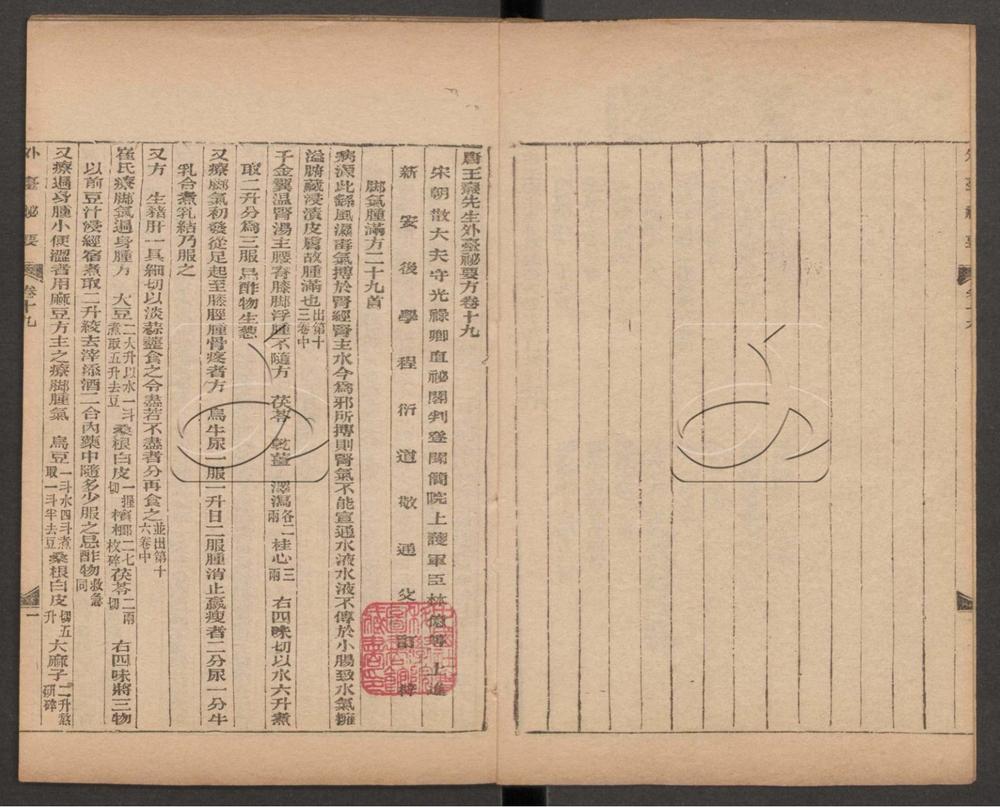 唐王燾先生外臺祕要方卷十九
宋朝散大夫守光祿卿直祕閣判登聞簡院上護軍臣林億等上進
新安後學程衍道敬通父訂梓
脚氣腫滿方二十九首
病源此繇風濕毒氣搏於腎經腎主水今爲邪所搏則腎氣不能宣通水液水液不傳於小腸致水氣擁
溢腑藏浸漬皮膚故腫滿也出第十三卷中
千金翼溫腎湯主腰脊膝脚浮腫不隨方 茯苓 乾薑 澤瀉各二兩 桂心三兩 右四味切以水六升煮
取二升分爲三服忌酢物生葱
又療脚氣初發從足起至膝脛腫骨疼者方 烏牛尿一服一升日二服腫消止羸瘦者二分尿一分牛
乳合煮乳結乃服之
又方 生豬肝一具細切以淡蒜虀食之令盡若不盡者分再食之並出第十六卷中
崔氏療脚氣遍身腫方 大豆二大升以水一斗煮取五升去豆 桑根白皮一握切 檳榔二七枚碎 茯苓二兩切 右四味將三物
以前豆汁浸經宿煮取二升絞去滓添酒二合內藥中隨多少服之忌酢物救急同
又療遍身腫小便澀者用麻豆方主之療脚腫氣 烏豆一斗水四斗煮取一斗半去豆 桑根白皮切五升 大麻子二升熬研碎
外臺祕要 卷十九 一